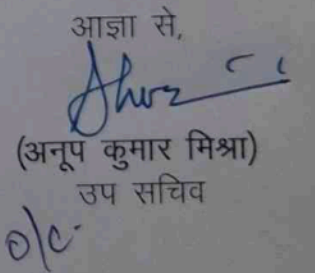 आज्ञा से,
(अनूप कुमार मिश्रा)
उप सचिव
o/c.